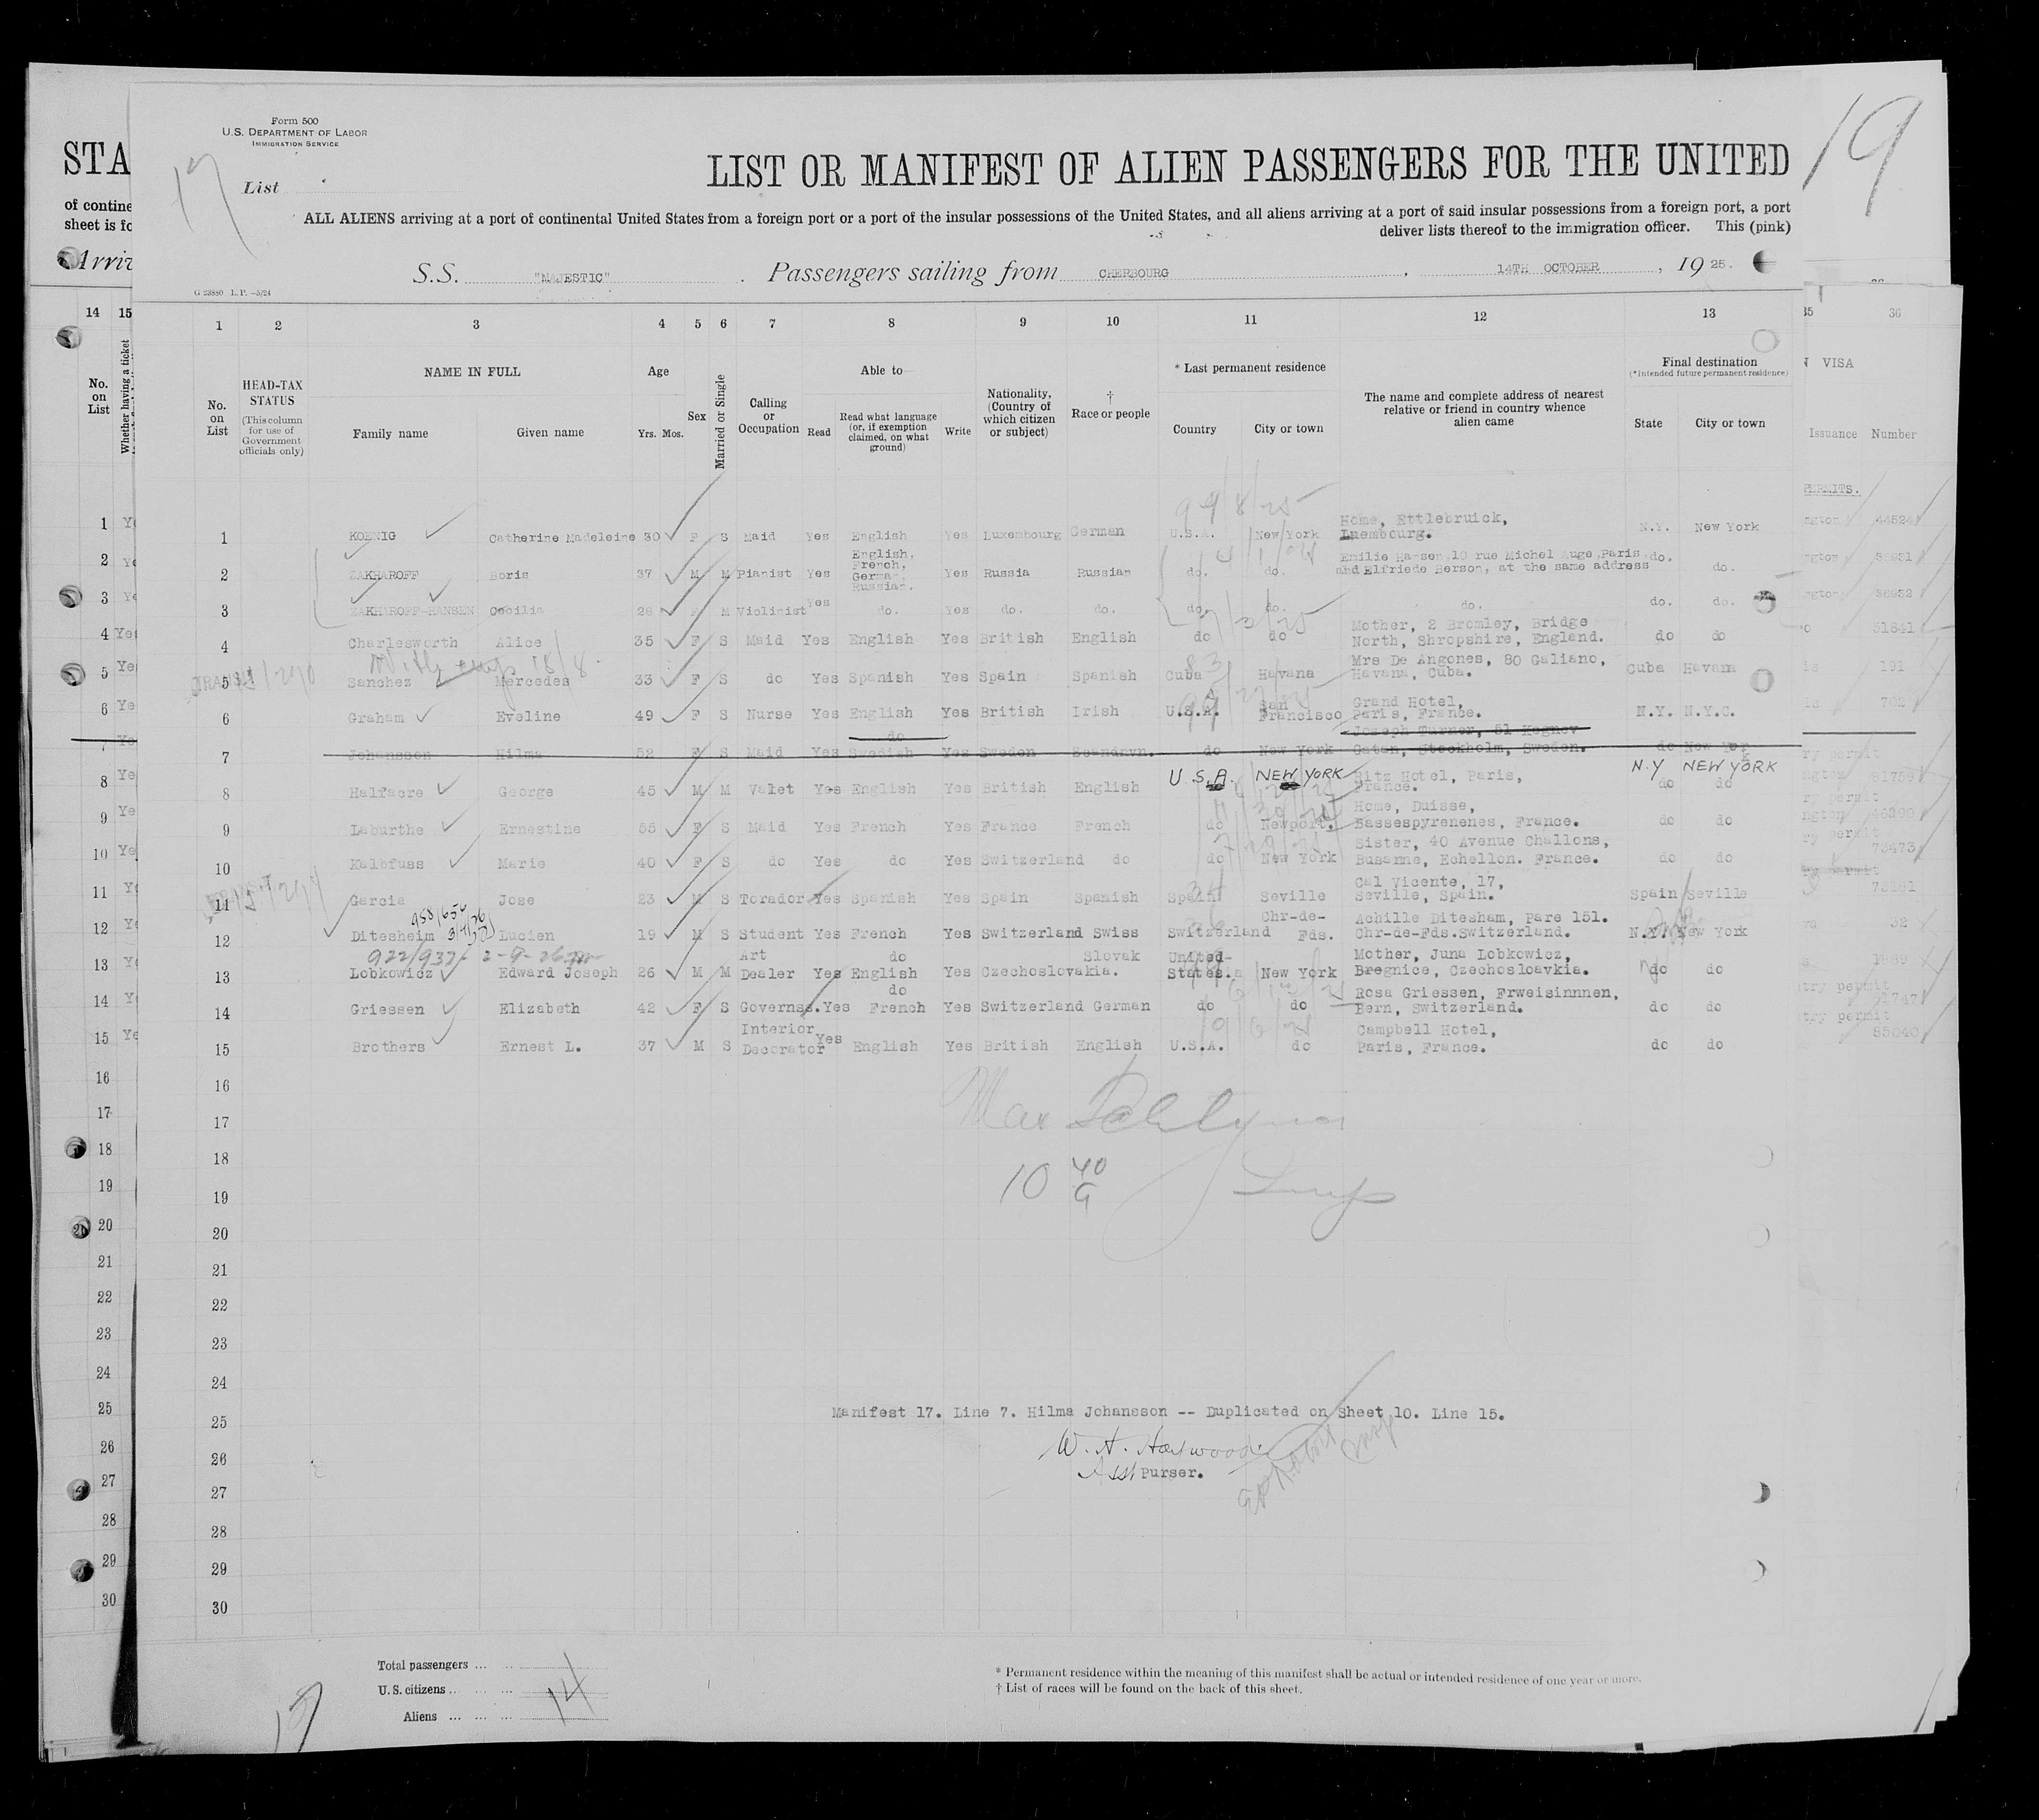 Form 500
U.S. DEPARTMENT OF LABOR
IMMIGRATION SERVICE
17
19
STA
List
LIST OR MANIFEST OF ALIEN PASSENGERS FOR THE UNITED
of contine
sheet is fo
ALL ALIENS arriving at a port of continental United States from a foreign port or a port of the insular possessions of the United States, and all aliens arriving at a port of said insular possessions from a foreign port, a port
deliver lists thereof to the immigration officer. This (pink)
Arriv
S.S. "MAJESTIC" . Passengers sailing from CHERBOURG , 14TH OCTOBER , 19 25.
G 23880 L.P. —5/24
14 15 1 2 3 4 5 6 7 8 9 10 11 12 13 35 36
No. on List
Whether having a ticket
No. on List
HEAD-TAX STATUS
(This column for use of Government officials only)
NAME IN FULL
Family name Given name
Age
Yrs. Mos.
Sex
Married or Single
Calling or Occupation
Able to
Read
Read what language (or, if exemption claimed, on what ground)
Write
Nationality, (Country of which citizen or subject)
† Race or people
* Last permanent residence
Country City or town
The name and complete address of nearest relative or friend in country whence alien came
Final destination
(*Intended future permanent residence)
State City or town
VISA
Issuance Number
PERMITS.
1 KOENIG Catherine Madeleine 30 F S Maid Yes English Yes Luxembourg German U.S.A. New York Home, Ettlebruick, Luembourg. N.Y. New York 44524
2 ZAKHAROFF Boris 37 M M Pianist Yes English, French, German, Russian. Yes Russia Russian do. do. Emilie Hansen, 10 rue Michel Auge, Paris and Elfriede Berson, at the same address do. do. 36931
3 ZAKHAROFF-HANSEN Cecilia 28 M Violinist Yes do. Yes do. do. do. do. do. do. do. 36932
4 Charlesworth Alice 35 F S Maid Yes English Yes British English do do Mother, 2 Bromley, Bridge North, Shropshire, England. do do 51641
5 Sanchez Mercedes 33 F S do Yes Spanish Yes Spain Spanish Cuba Havana Mrs De Angones, 80 Galiano, Havana, Cuba. Cuba Havana 191
6 Graham Eveline 49 F S Nurse Yes English Yes British Irish U.S.A. San Francisco Grand Hotel, Paris, France. N.Y. N.Y.C. 702
7 Johansson Hilma 52 F S Maid Yes do Swedish Yes Sweden Scandnvn. do New York Joseph Turner, 51 Regnev Gatan, Stockholm, Sweden. do New York
8 Halfacre George 45 M M Valet Yes English Yes British English U.S.A. NEW YORK Ritz Hotel, Paris, France. N.Y NEW YORK do do 81759
9 Laburthe Ernestine 55 F S Maid Yes French Yes France French do Newport. Home, Duisse, Bassespyrenenes, France. do do 46390
10 Kalbfuss Marie 40 F S do Yes do Yes Switzerland do do New York Sister, 40 Avenue Challons, Busanne, Echellon. France. do do 73473
11 Garcia Jose 23 M S Torador Yes Spanish Yes Spain Spanish Spain Seville Cal Vicente, 17, Seville, Spain. Spain Seville
12 Ditesheim Lucien 19 M S Student Yes French Yes Switzerland Swiss Switzerland Chr-de-Fds. Achille Ditesham, Parc 151. Chr-de-Fds.Switzerland. N.Y. New York 32
922/937- 2-9-26
13 Lobkowicz Edward Joseph 26 M M Art Dealer Yes do English Yes Czechoslovakia. Slovak United-States. New York Mother, Juna Lobkowicz, Bregnice, Czechosloavkia. do do 1989
14 Griessen Elizabeth 42 F S Governss. Yes do French Yes Switzerland German do do Rosa Griessen, Frweisinnnen, Bern, Switzerland. do do
15 Brothers Ernest L. 37 M S Interior Decorator Yes English Yes British English U.S.A. do Campbell Hotel, Paris, France. do do 85040
16
17
18
10 40
19
20
21
22
23
24
25 Manifest 17. Line 7. Hilma Johansson -- Duplicated on Sheet 10. Line 15.
W. A. Harwood
26 Asst Purser.
27
28
29
30
Total passengers ... ...
U.S. citizens ... ... ...
Aliens ... ... ...
14
17
* Permanent residence within the meaning of this manifest shall be actual or intended residence of one year or more.
† List of races will be found on the back of this sheet.